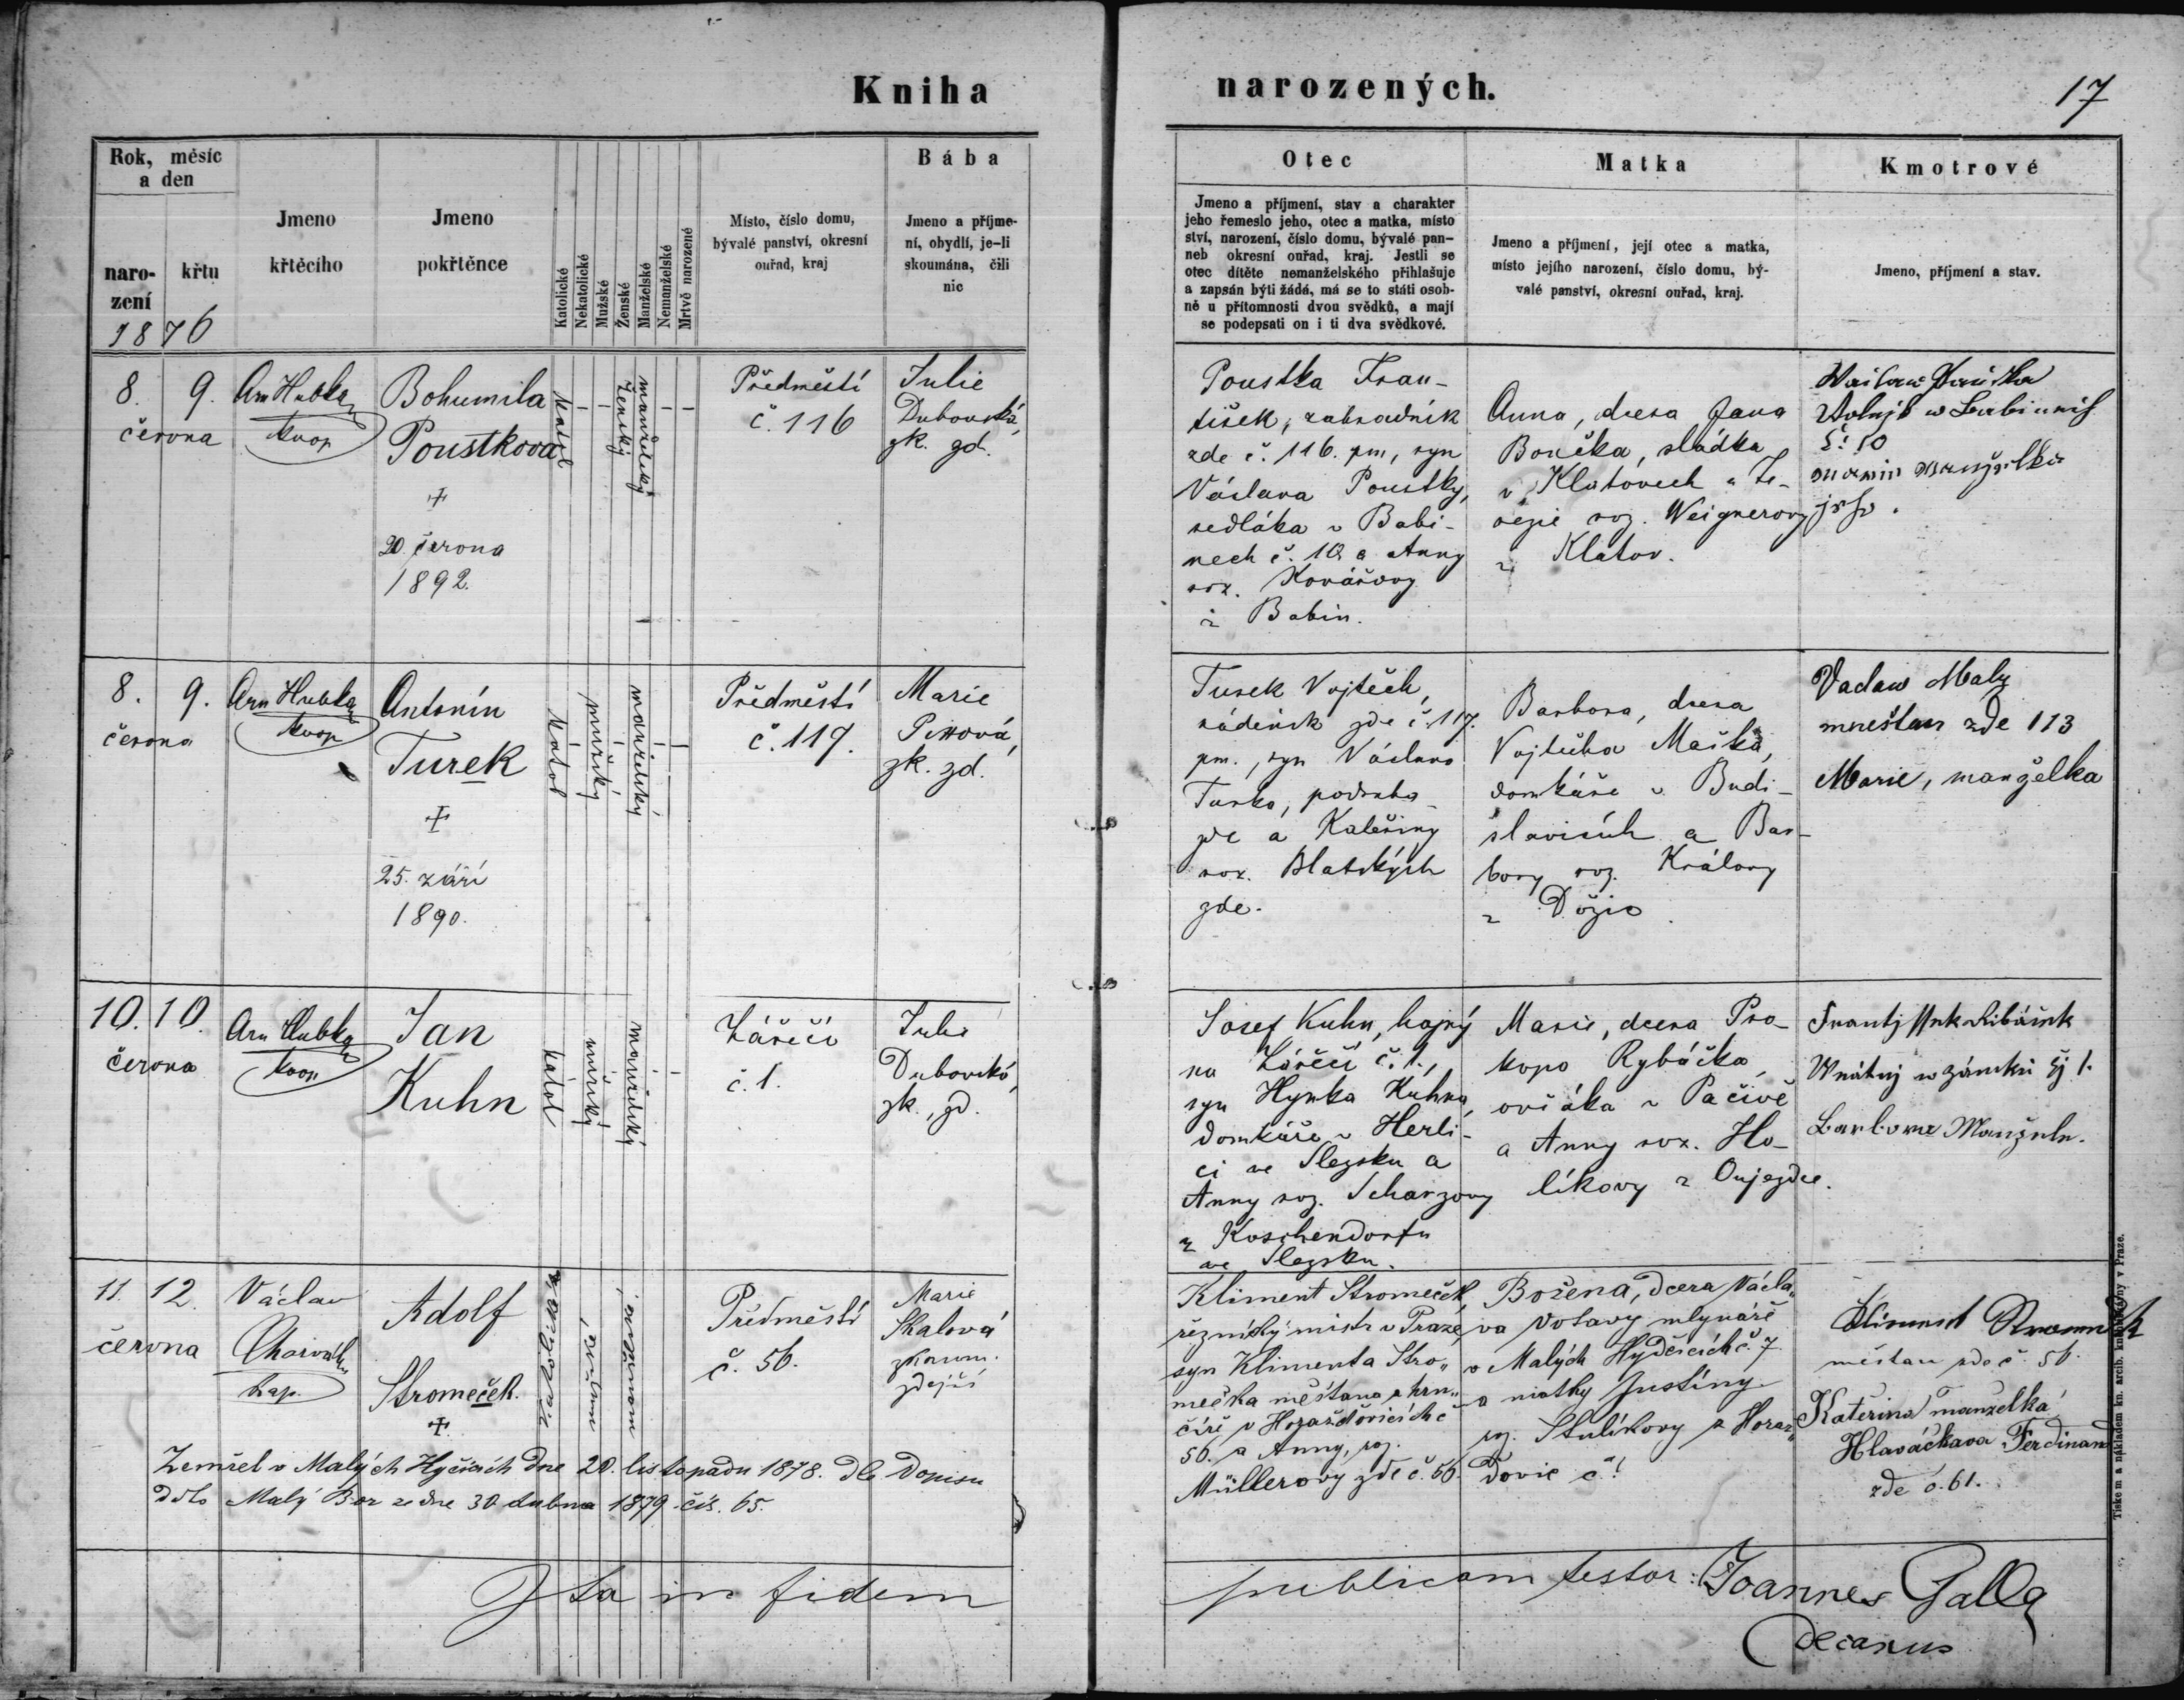 Kniha
narozených.
17
Rok, měsíc
a den
naro-
zení
křtu
1876
Jmeno
křtěcího
Jmeno
pokřtěnce
Katolické
Nekatolické
Mužské
Ženské
Manželské
Nemanželské
Mrtvě narozené
Místo, číslo domu,
bývalé panství, okresní
ouřad, kraj
Bába
Jmeno a příjme-
ní, obydlí, je-li
skoumána, čili
nic
Otec
Jmeno a příjmení, stav a charakter
jeho řemeslo jeho, otec a matka, místo
ství, narození, číslo domu, bývalé pan-
neb okresní ouřad, kraj. Jestli se
otec dítěte nemanželského přihlašuje
a zapsán býti žádá, má se to státi osob-
ně u přítomnosti dvou svědků, a mají
se podepsati on i ti dva svědkové.
Matka
Jmeno a příjmení, její otec a matka,
místo jejího narození, číslo domu, bý-
valé panství, okresní ouřad, kraj.
Kmotrové
Jmeno, příjmení a stav.
8. 9.
června
Arn Hubka
koop
Bohumila
Poustkova
+
20. června
1892.
katol
ženský
manželský
Předměstí
č. 116
Julie
Dubovská,
zk. zd.
Poustka Fran-
tišek, zahradník
zde č. 116. pm, syn
Václava Poustky,
sedláka v Babi-
nech č. 10 a Anny
roz. Kovářovy
z Babin.
Anna, dcera Jana
Boučka, sládka
v Klatovech a Te-
rezie roz. Weignerovy
z Klatov.
č: 10
jeho.
8. 9.
června
Arn Hubka
koop
Antonín
Turek
+
25. září
1890.
katol
mužský
manželský
Předměstí
č. 117.
Marie
zk. zd.
Turek Vojtěch,
nádeník zde č. 117.
pm., syn Václava
Turka, podruha
zde a Kateřiny
roz. Blatských
zde.
Barbora, dcera
Vojtěcha Maška,
domkáře v Budi-
slavicích a Bar-
bory roz. Královy
z Dožic.
Vaclaw Maly
mnešťan zde 113
Marie, manželka
10. 10.
června
Arn Hubka
koop
Jan
Kuhn
katol
mužský
manželský
Zářečí
č. 1.
Julie
Dubovská,
zk., zd.
Josef Kuhn, hajný
na Zářečí č. 1.,
syn Hynka Kuhna,
domkáře v Herli-
ci ve Slezsku a
Anny roz. Scharzovy
z Koschendorfu
ve Slezsku.
Marie, dcera Pro-
kopa Rybáčka,
ovčáka v Pačivě
a Anny roz. Ho-
líkovy z Oujezdce.
Frantissek Ribáček
Wrátný w zámku čj 1.
Barbora Manžele.
11. 12.
června
Václav
Charvát
kap.
Adolf
Stromeček.
+
Katolické
mužské
manželské
Předměstí
č. 56.
Marie
Skalová
zkoum.
zdejší
Kliment Stromeček,
řeznický mistr v Praze,
syn Klimenta Stro-
mečka měšťana a hrn-
číře v Horažďovicích č
56. a Anny, roz.
Müllerovy zde č. 56.
Božena, dcera Václa-
va Votavy mlynáře
v Malých Hydčicích č. 7
a matky Justiny
roz. Stulíkovy z Horaž-
ďovic č!
Kliment Stromeček
měšťan zde č. 56.
Kateřina manželka
Hlaváčkova Ferdinand
zde č. 61.
Zemřel v Malých Hyčicích dne 20. listopadu 1878. dle dopisu
ddto Malý Bor ze dne 30 dubna 1879 čís. 65.
Ita in fidem
publicam testor: Joannes Galla
decanus
Tiskem a nákladem kn. arcib. knihtiskárny v Praze.